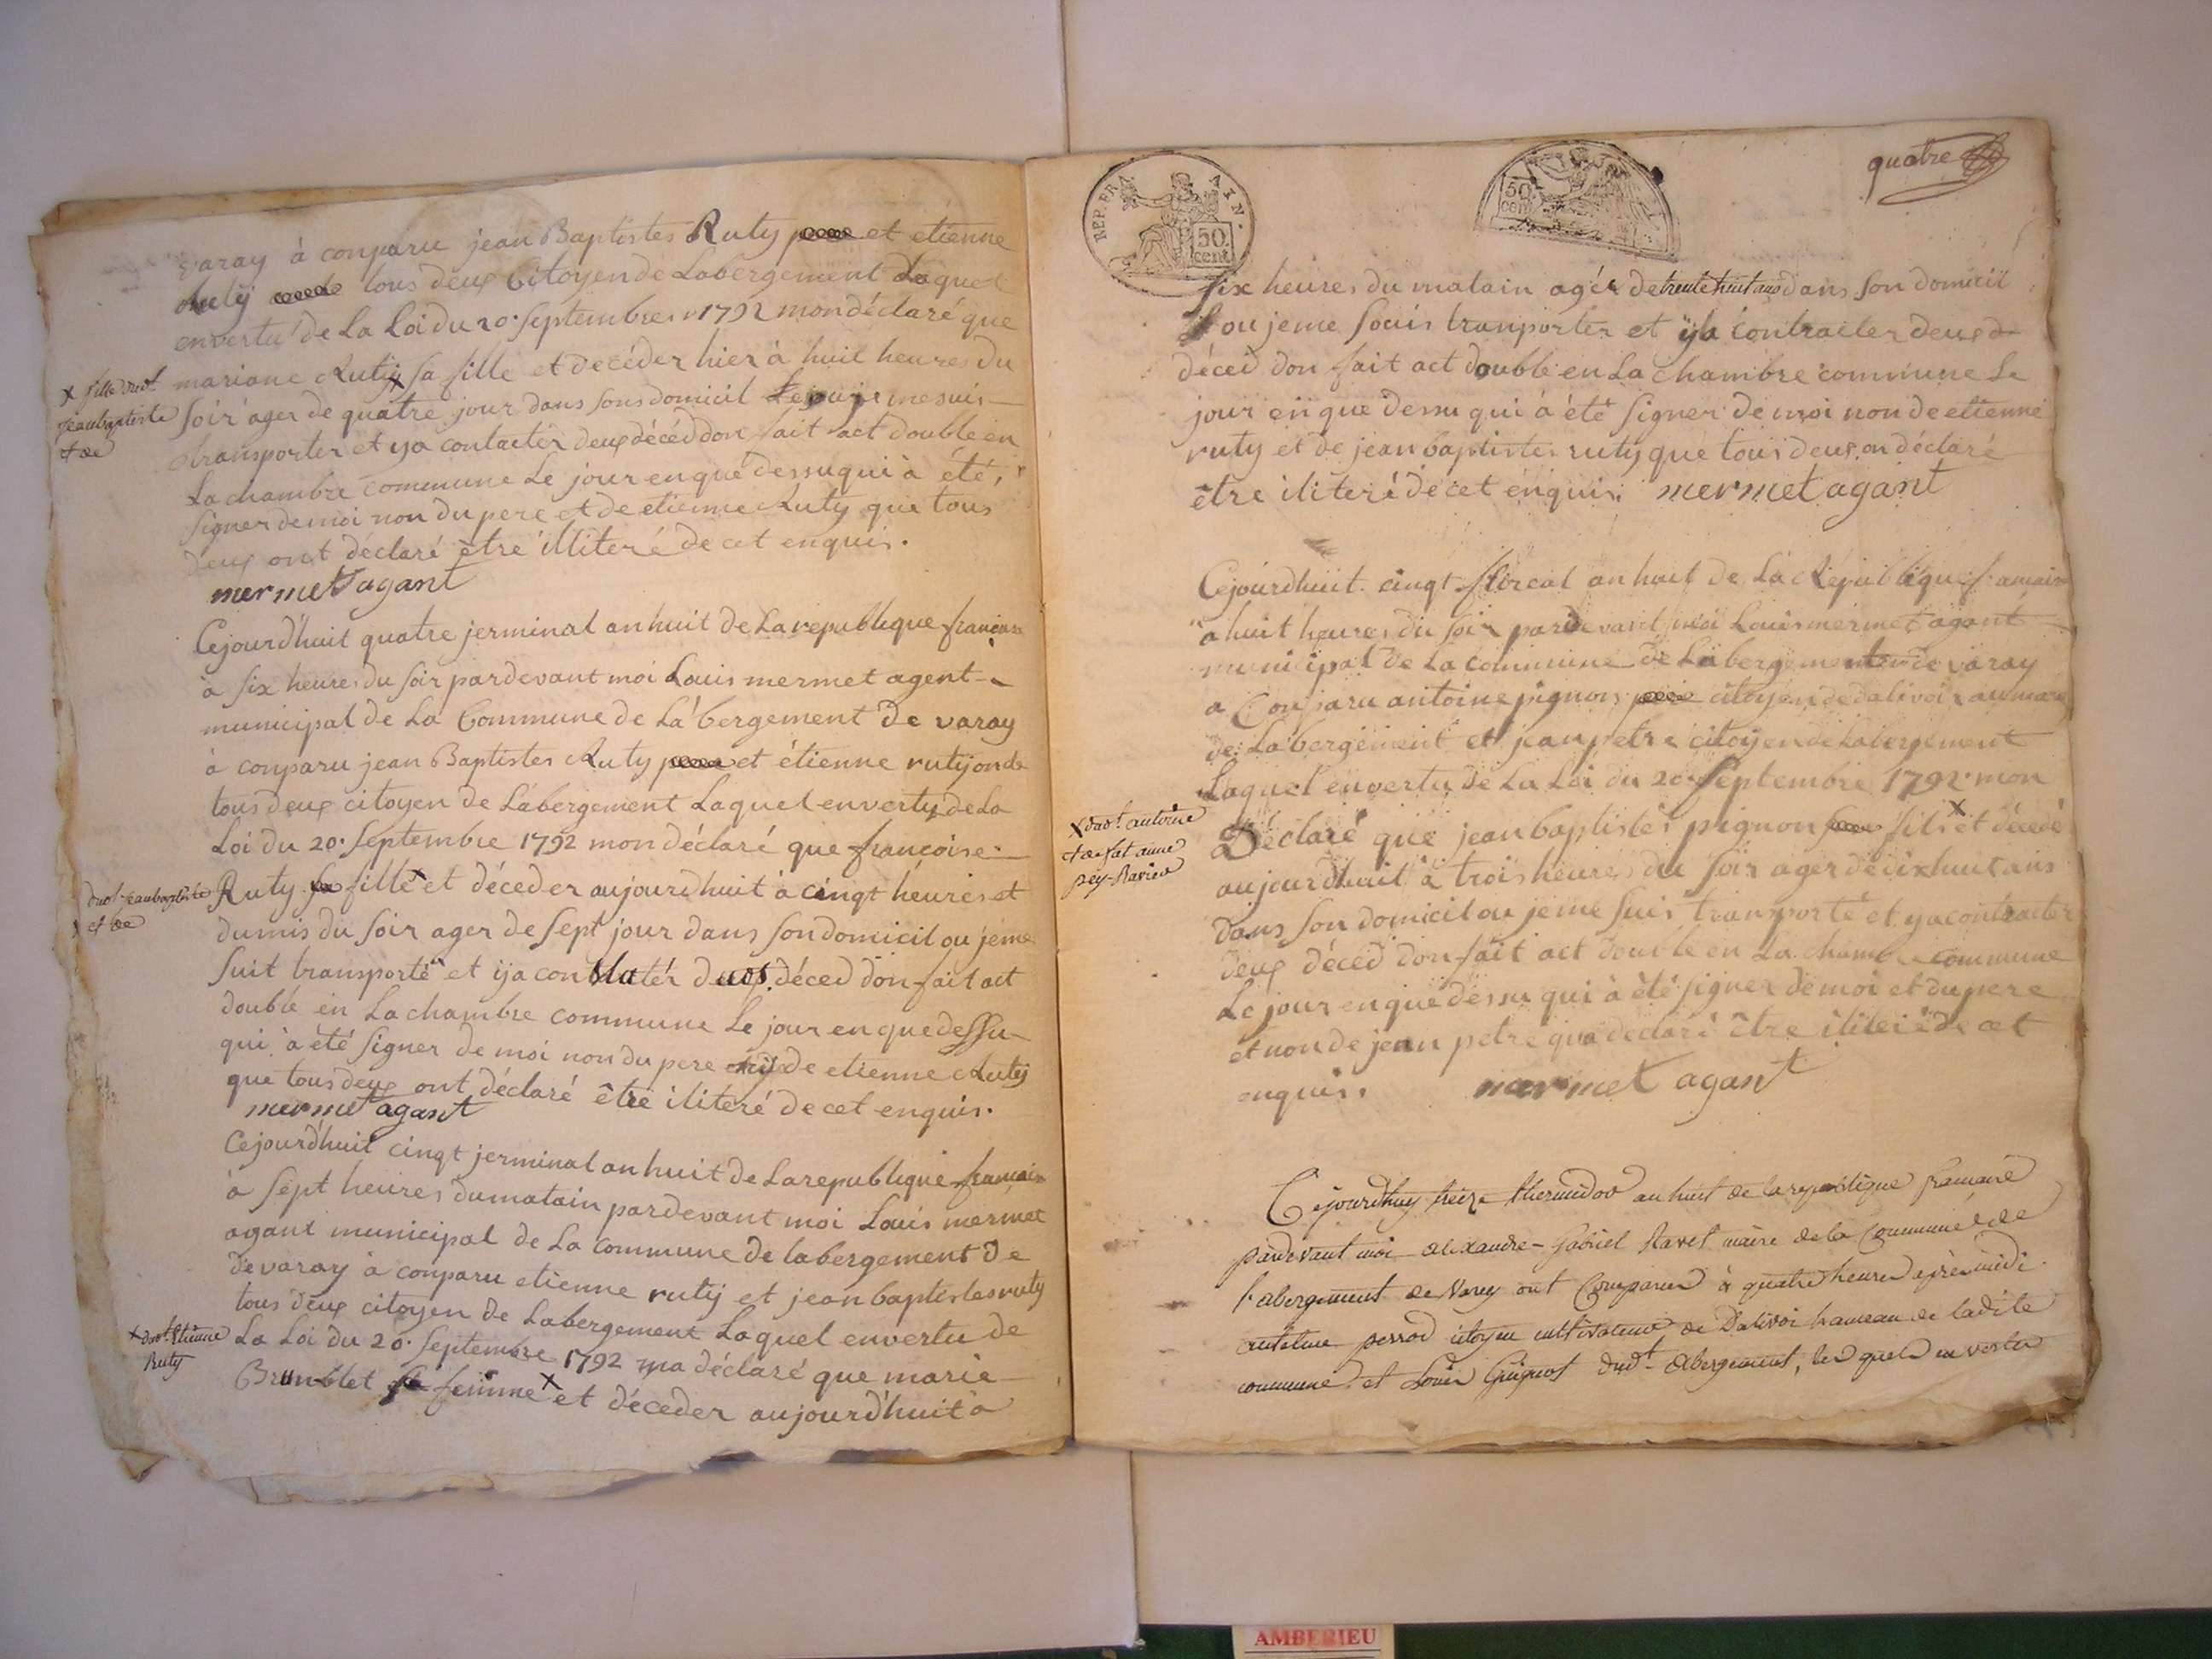 varay à conparu jean Baptistes Ruty et etienne
Ruty tous deux Citoyen de Labergement Laquel
envertu de La Loi du 20. Septembres 1792 mon déclaré que
mariane Rutij sa fille et decéder hier à huit heures du
x fille dudt
jeanbaptiste
soir ager de quatre jour dans sons domicil me suis
transporter et ya contacter deux décéd don fait act double en
La chambre commune Le jour enque dessu qui à été,
signer de moi non du pere et de etienne Ruty que tous
deux ont déclaré être illiteré de cet enquis.
mermet agant
Cejourd'huit quatre jerminal an huit de La republique française
à six heures du soir pardevant moi Louis mermet agent
municipal de La Commune de La'bergement de varay
à conparu jean Baptistes Ruty et étienne rutij
tous deux citoyen de Labergement Laquel envertu de La
Loi du 20. Septembre 1792 mon déclaré que francoise
Ruty fille et décéder aujourd'huit à cinqt heures et
dudt jeanbaptiste
dumis du soir ager de Sept jour dans son domicil ou jeme
suit transporté et ya déced don fait act
double en La chambre commune Le jour enque dessu
qui à été signer de moi non du pere de etienne Rutij
que tous deux ont déclaré être iliteré de cet enquis.
mermet agant
Cejourd'huit cinqt jerminal an huit de La republique française
à sept heures du matain pardevant moi Louis mermet
agant municipal de La commune de labergement de
de varay à conparu etienne rutij et jean baptistes ruty
tous deux citoyen de Labergement Laquel envertu de
La Loi du 20. Septembre 1792 ma déclaré que marie
x dudt Etienne
Ruty
Brunblet femme x et déceder aujourd'huit à
quatre
REP. FRA. AIN.
50. cent.
50 cent
six heures du matain agér de trente huit ans dans son domicil
ou jeme souis tranporter et ija contraiter deux
déced don fait act double en La chambre commune Le
jour enque dessu qui à été signer de moi non de etienne
ruty et de jean baptistes rutij que tous deux on déclaré
être iliteré de cet enquis. mermet agant
Cejourdhuit cinqt floreal an huit de La République francaise
a huit heures du soir pardevant moi Louis mermet agant
municipal de La commune de Labergement de varay
a Conparu antoine pignon citoyen de dalivoir aumau
de Labergement et jean petre citoyen de Labergement
Laquel envertu de La Loi du 20. Septembre 1792. mon
Déclaré que jean baptistes pignon fils x et décedé
x dudt antoine
et de fat anne
pey-Ravier
aujourdhuit à trois heures du soir ager dedixhuit ans
dans son domicil ou jeme suis transporté et ya contraiter
deux décéd don fait act double en La chambre commune
Le jour enque dessu qui à été signer de moi et du pere
et non de jean petre qua déclaré être iliteré de cet
enquis. mermet agant
Cejourdhuy treize thermidor an huit de la republique francaise
pardevant moi alexandre-gabriel Ravet maire de la Commune de
l'abergement de Varey ont Comparu à quatre heures après midi
antoine perrod citoyen cultivateur de Dalivoi hameau de ladite
commune et Louis Guignot dudt abergement, lesquels en vertu
AMBERIEU